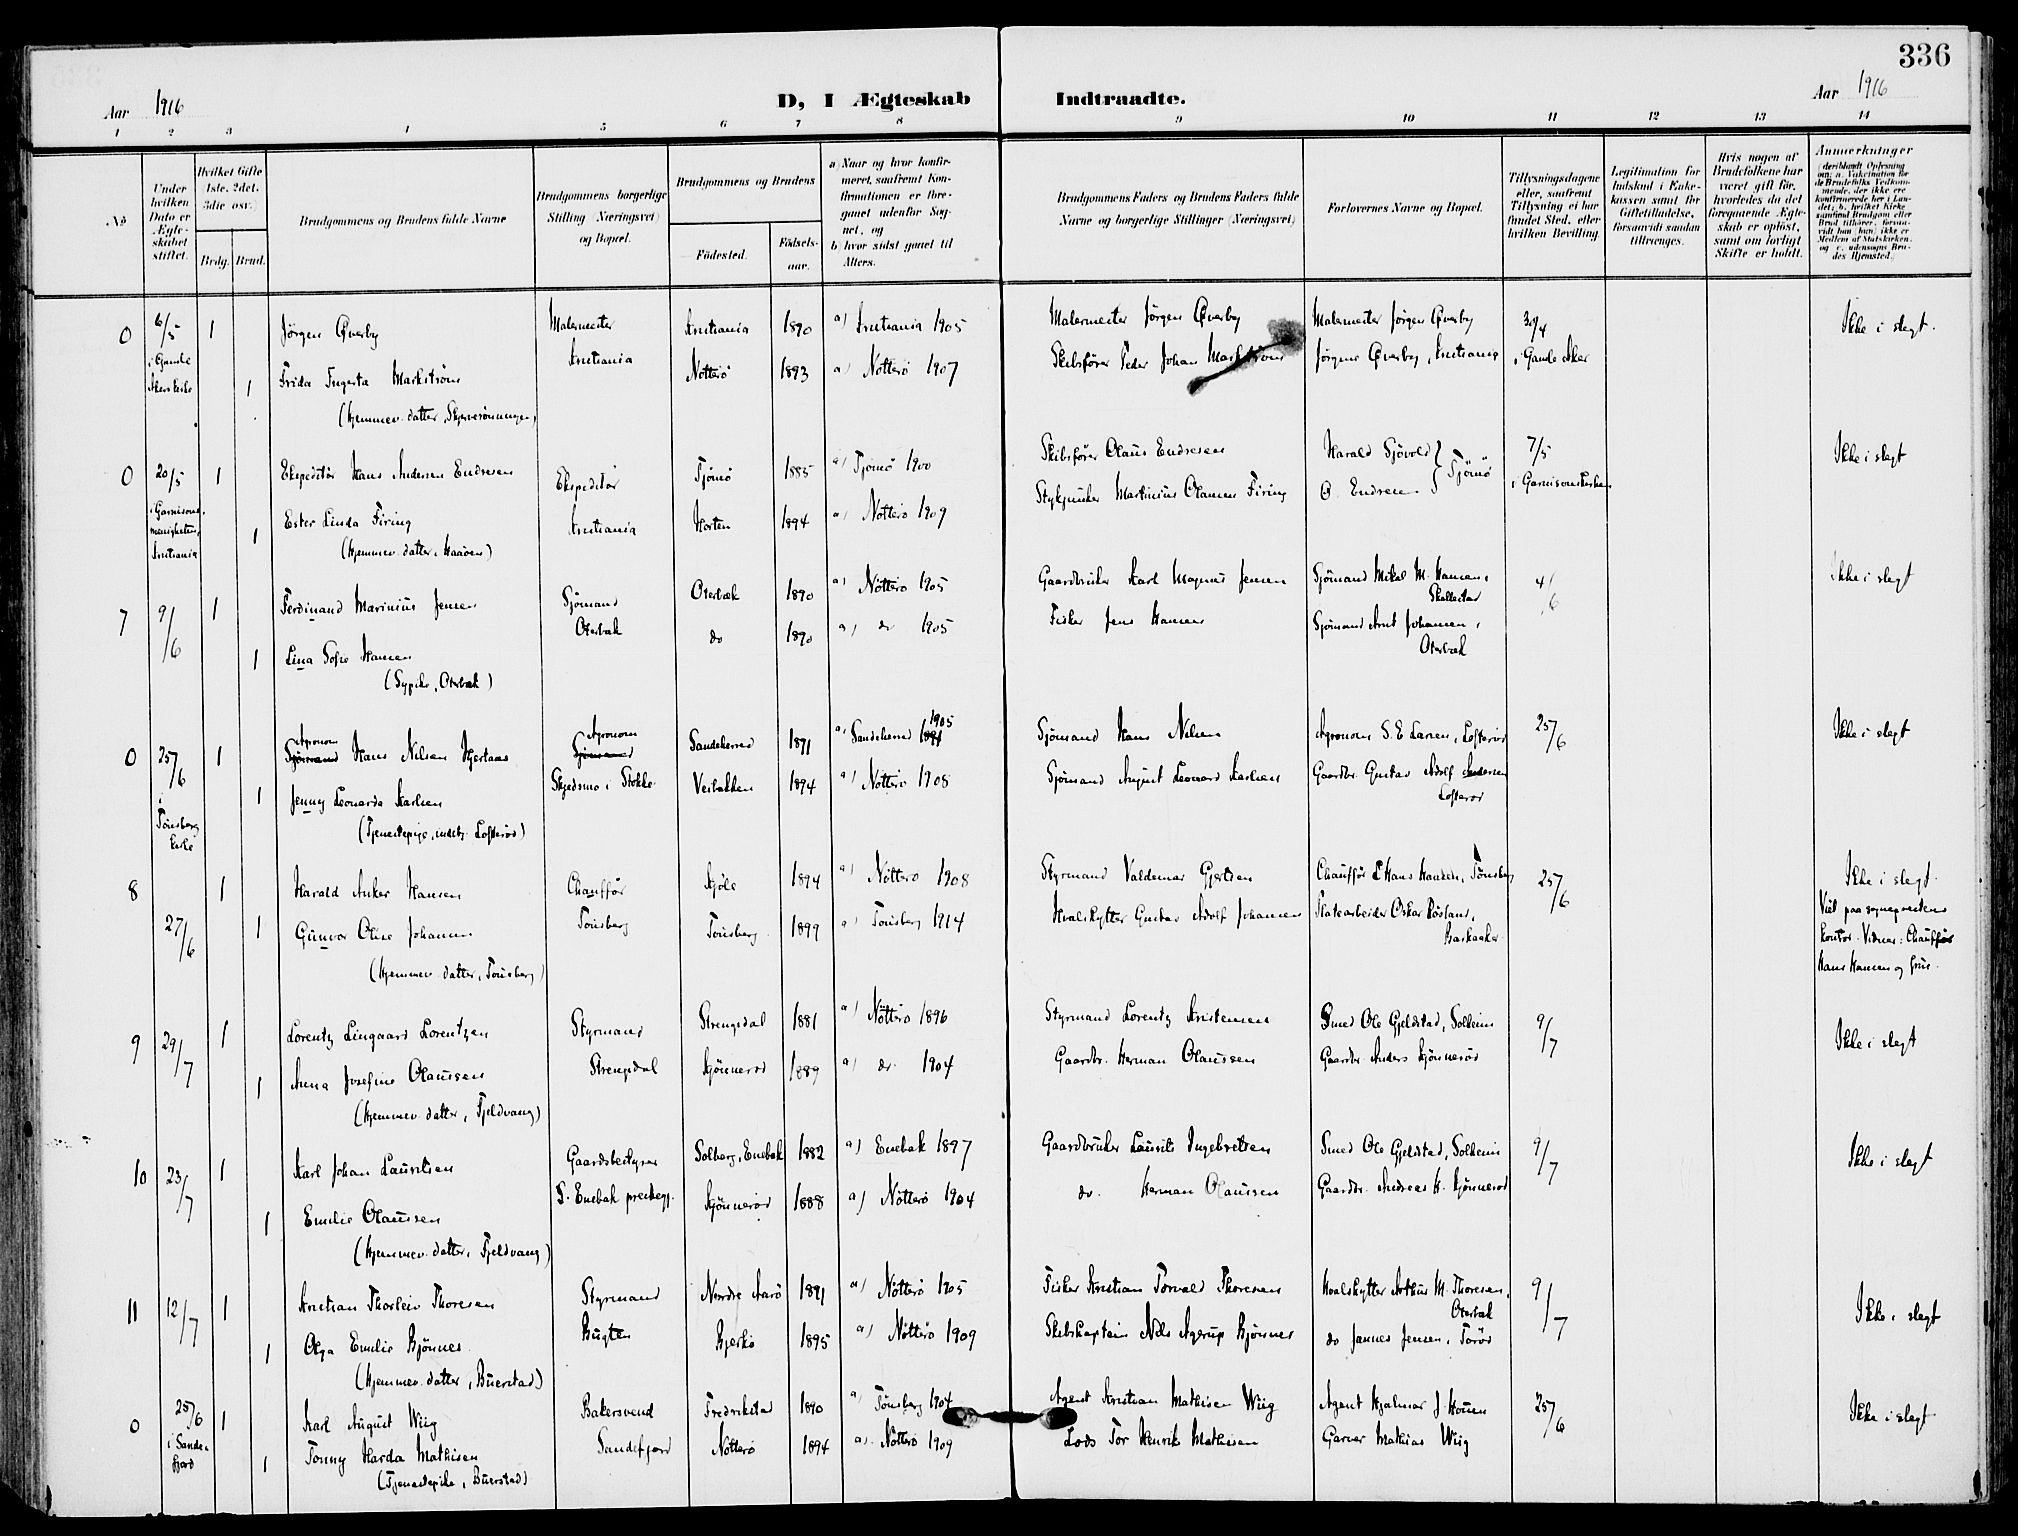 336
Aar 1916
D, I Ægteskab Indtraadte.
Aar 1916
1 2 3 4 5 6 7 8 9 10 11 12 13 14
No
Under hvilken Dato er Ægteskabet stiftet.
Hvilket Gifte 1ste. 2det. 3die osv.
Brdg. Brud.
Brudgommens og Brudens fulde Navne
Brudgommens borgerlige Stilling (Næringsvei) og Bopæl.
Brudgommens og Brudens
Fødested.
Fødselsaar.
a) Naar og hvor konfirmeret, saafremt Konfirmationen er foregaaet udenfor Sognet, og
b) hvor sidst gaaet til Alters.
Brudgommens Faders og Brudens Faders fulde Navne og borgerlige Stillinger (Næringsvei)
Forlovernes Navne og Bopæl.
Tillysningsdagene eller, saafremt Tillysning ei har fundet Sted, efter hvilken Bevilling
Legitimation for Indskud i Enkekassen samt for Giftetilladelse, forsaavidt saadan tiltrænges.
Hvis nogen af Brudefolkene har været gift før, hvorledes da det foregaaende Ægteskab er opløst, samt om lovligt Skifte er holdt.
Anmærkninger
0 6/5 1 Jörgen Qverby Malermester Kristiania 1890 a) Kristiania 1905 Malermester Jörgen Qverby Malermester Jörgen Qverby 30/4 Ikke i slegt.
i Gamle Akers kirke 1 Frida Ingerta Markström Kristiania Nötterö 1893 a) Nötterö 1907 Skibsförer Peder Johan Markström Jörgine Qverby, Kristiania i Gamle Aker
(Hjemmev. datter, Skjerveröningen)
0 20/5 1 Ekspeditör Hans Andersen Endresen Ekspeditör Tjömö 1885 a) Tjömö 1900 Skibsförer Olaus Endresen Harald Sjövold 7/5 Ikke i slegt
i Garnisonsmenigheten, Kristiania 1 Ester Linda Firing Kristiania Horten 1894 a) Nötterö 1909 Stykjunker Martinius Olaması Firing O. Endresen } Tjömö i Garnisonskirken
(Hjemmev. datter, Haaöen)
7 9/6 1 Ferdinand Marinius Jensen Sjömand Oterbæk 1890 a) Nötterö 1905 Gaardbruker Karl Magnus Jensen Sjömand Mikal M. Hansen, Skallestad 4/6 Ikke i slegt
1 Lina Sofie Hansen Oterbæk do 1890 a) do 1905 Fisker Jens Hansen Sjömand Arnt Johansen, Oterbæk
(Sypike, Oterbæk)
0 25/6 1 Agronom Sjömand Hans Nilsen Hjertaas Agronom Sjömand Sandeherred 1891 a) Sandeherred 1905 1891 Sjömand Hans Nilsen Agronom S. E. Larsen, Lofteröd 25/6 Ikke i slegt
i Tönsberg kirke 1 Jenny Leonarda Karlsen Skjedsmo i Stokke Vestbakken 1894 a) Nötterö 1908 Sjömand August Leonard Karlsen Gaardbr. Gustav Adolf Andersen Lofteröd
(Tjenestepige, Lofteröd)
8 27/6 1 Harald Anker Hansen Chaufför Kjöle 1894 a) Nötterö 1908 Styrmand Valdemar Gjertsen Chaufför Hans Hansen, Tönsberg 25/6 Ikke i slegt.
1 Gunvor Oline Johansen Tönsberg Tönsberg 1899 a) Tönsberg 1914 Hvalskytter Gustav Adolf Johansen Oskar Röstand, Barkaaker Viet paa sogneprestens kontor. Vidner: Chauffør Hans Hansen og frue.
(Hjemmev. datter, Tönsberg)
9 29/7 1 Lorentz Lingaard Lorentzen Styrmand Strengsdal 1881 a) Nötterö 1896 Styrmand Lorentz Kristensen Smed Ole Gjeldstad, Solheim 9/7 Ikke i slegt
1 Anna Josefine Olaussen Strengsdal Kjönneröd 1889 a) do. 1904 Gaardbr. Herman Olaussen Gaardbr. Anders Kjönneröd
(Hjemmev. datter, Fjeldvang)
10 23/7 1 Karl Johan Lauritsen Gaardsbestyrer Solberg, Enebak 1882 a) Enebak 1897 Gaardbruker Laurits Ingebretsen Smed Ole Gjeldstad, Solheim 9/7 Ikke i slegt
1 Emilie Olaussen S. Enebak prestegj. Kjönneröd 1888 a) Nötterö 1904 do. Herman Olaussen Gaardbr. Andreas H. Kjönneröd
(Hjemmev. datter, Fjeldvang)
11 12/7 1 Kristian Thorleiv Thoresen Styrmand Nordre Aarö 1891 a) Nötterö 1905 Fisker Kristian Torvald Thoresen Hvalskytter Arthur M. Thoresen, Oterbæk 9/7 Ikke i slegt
1 Olga Emilie Bjönnes Bugten Bjerkö 1895 a) Nötterö 1909 Skibskaptein Nils Agerup Bjönnes do Jannes Jensen, Toröd
(Hjemmev. datter, Buerstad)
0 25/6 1 Karl August Wiig Bakersvend Fredrikstad 1890 a) Tönsberg 1904 Agent Kristian Mathisen Wiig Agent Hjalmar J. Houen 25/6 Ikke i slegt
i Sandefjord 1 Tonny Harda Mathisen Sandefjord Nötterö 1894 a) Nötterö 1909 Lods Tor Henrik Mathisen Garver Mathias Wiig
(Tjenestepike, Buerstad)